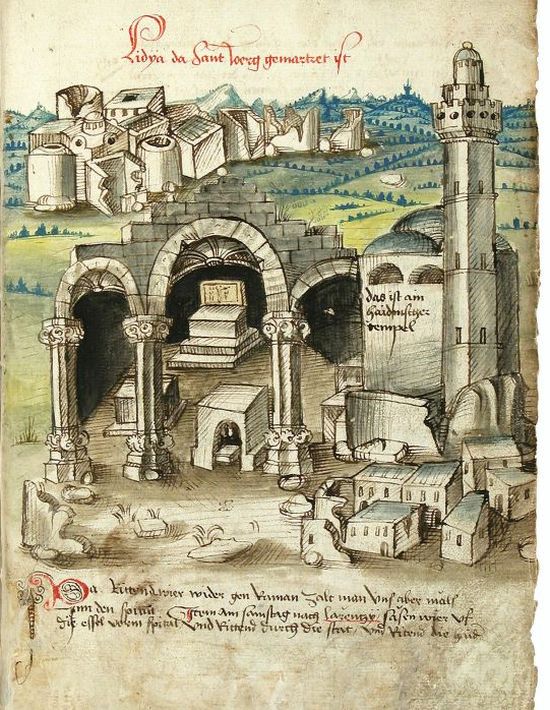 Lidya da sant Joerg gemartret ist
das ist am
haidnischer
tempel
Da Rittend wier wider gen Raman zalt man vns aber mals
jnn den spital Ittem am samstag nach Larenzy sasen wier vf
die essel vorm spital vnd Rittend durch die stat, vnd Ritend die